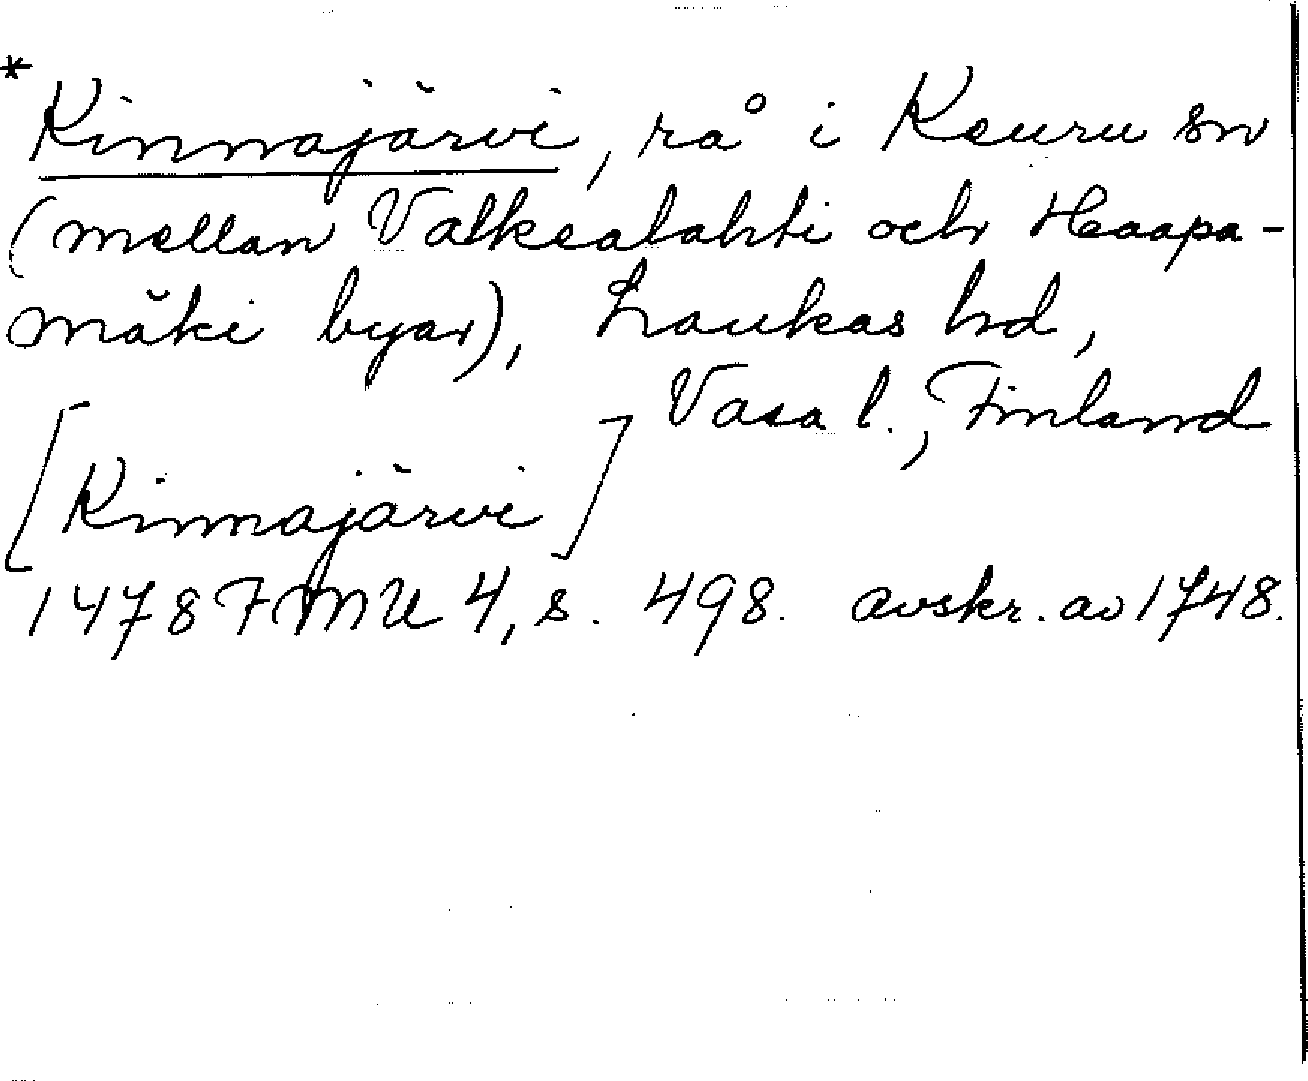 * Kinnajärvi, rå i Keuru sn
(mellan Valkealahti och Haapa-
mäki byar), Laukas hd,
Vasa l., Finland
[Kinnajärvi]
1478 FMU 4, s. 498. avskr. av 1748.